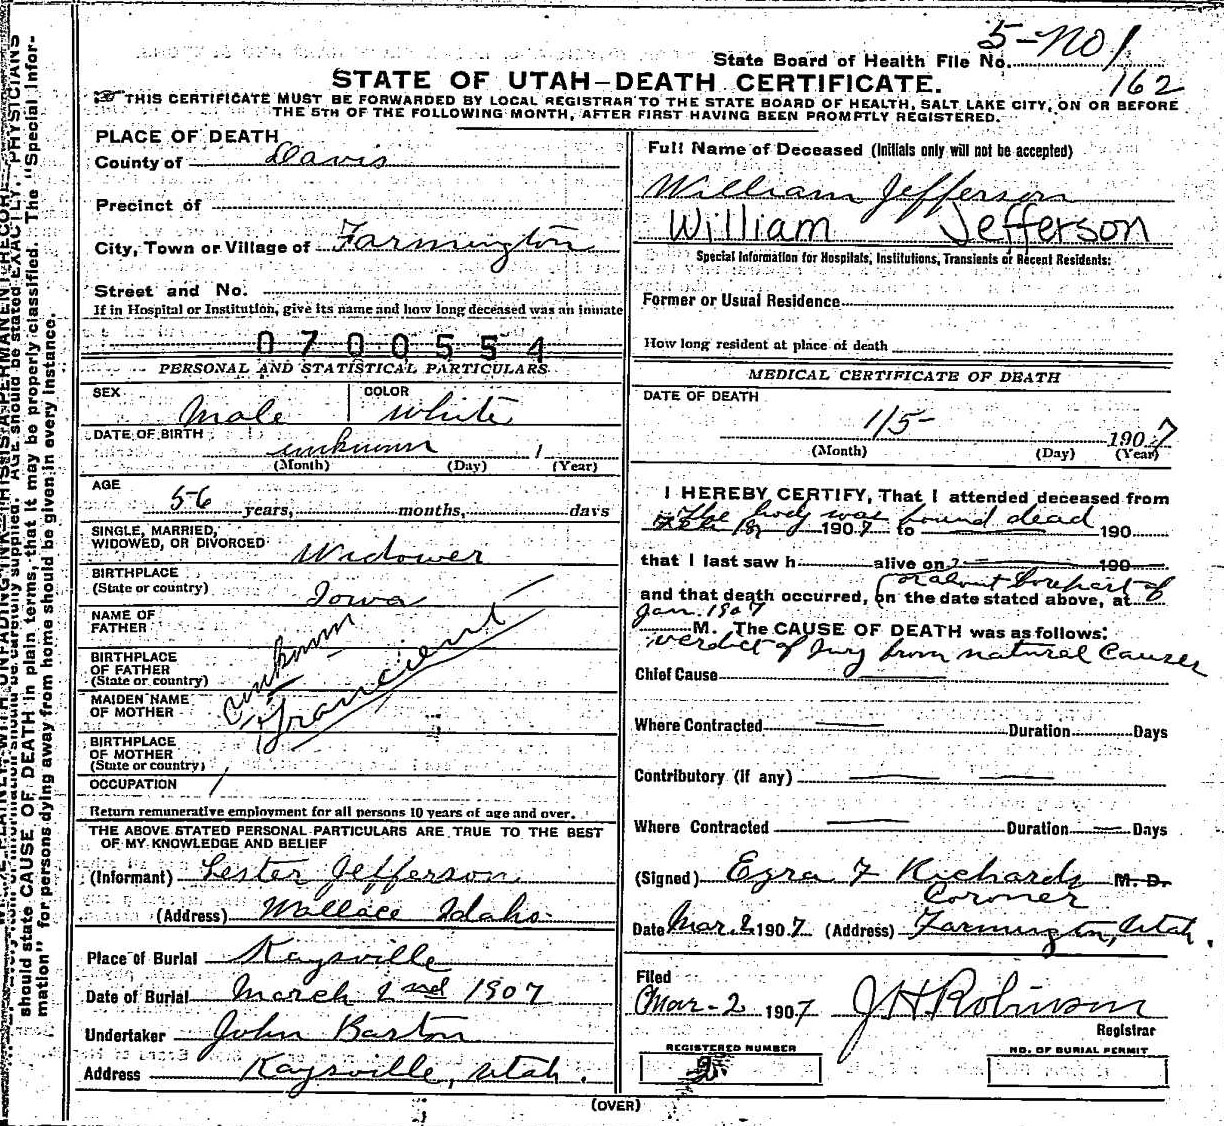 5-No 1
State Board of Health File No.
162
STATE OF UTAH—DEATH CERTIFICATE.
THIS CERTIFICATE MUST BE FORWARDED BY LOCAL REGISTRAR TO THE STATE BOARD OF HEALTH, SALT LAKE CITY, ON OR BEFORE
THE 5TH OF THE FOLLOWING MONTH, AFTER FIRST HAVING BEEN PROMPTLY REGISTERED.
PLACE OF DEATH
County of Davis
Precinct of
City, Town or Village of Farmington
Street and No.
If in Hospital or Institution, give its name and how long deceased was an inmate
0700554
PERSONAL AND STATISTICAL PARTICULARS
SEX Male COLOR White
DATE OF BIRTH unknown 1
(Month) (Day) (Year)
AGE
56 years, months, days
SINGLE, MARRIED,
WIDOWED, OR DIVORCED Widower
BIRTHPLACE
(State or country) Iowa
NAME OF
FATHER
BIRTHPLACE
OF FATHER
(State or country)
unknown
MAIDEN NAME
OF MOTHER
BIRTHPLACE
OF MOTHER
(State or country)
OCCUPATION
Return remunerative employment for all persons 10 years of age and over.
THE ABOVE STATED PERSONAL PARTICULARS ARE TRUE TO THE BEST
OF MY KNOWLEDGE AND BELIEF
(Informant) Lester Jefferson
(Address) Wallace Idaho
Place of Burial Kaysville
Date of Burial March 2nd 1907
Undertaker John Barton
Address Kaysville, Utah.
Full Name of Deceased (Initials only will not be accepted)
William Jefferson
William Jefferson
Special Information for Hospitals, Institutions, Transients or Recent Residents:
Former or Usual Residence
How long resident at place of death
MEDICAL CERTIFICATE OF DEATH
DATE OF DEATH
1/5- 1907
(Month) (Day) (Year)
I HEREBY CERTIFY, That I attended deceased from
The body was found dead
1907 to 190
that I last saw h alive on 190
or about forepart of
and that death occurred, on the date stated above, at
Jan. 1907
M. The CAUSE OF DEATH was as follows:
verdict of Jury from natural Causes
Chief Cause
Where Contracted Duration Days
Contributory (if any)
Where Contracted Duration Days
(Signed) Ezra F Richards M. D.
Coroner
Date Mar. 2 1907 (Address) Farmington, Utah.
Filed
Mar-2 1907 J H Robinson
Registrar
REGISTERED NUMBER
NO. OF BURIAL PERMIT
(OVER)
should state CAUSE OF DEATH in plain terms, that it may be properly classified. The "Special Infor-
mation" for persons dying away from home should be given in every instance.